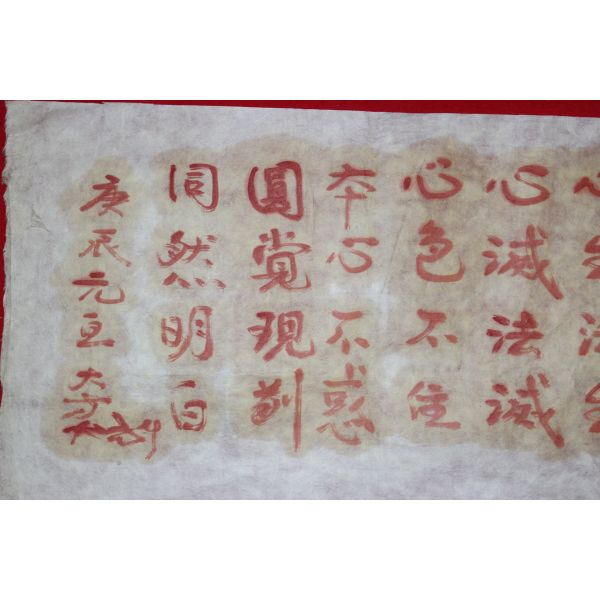 心滅法滅
心色不住
本心不惑
圓覚現前
洞然明白
庚辰元旦 大